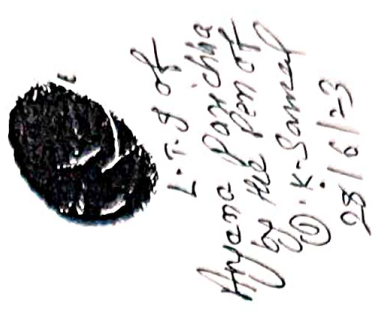 L.T.I of
Aryana Paricha
by the Pen of
D.K. Samal
28/6/23